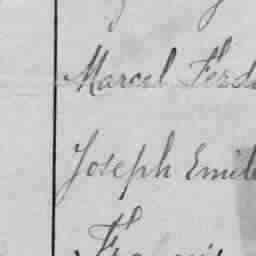 Marcel Ferd
Joseph Emile
François